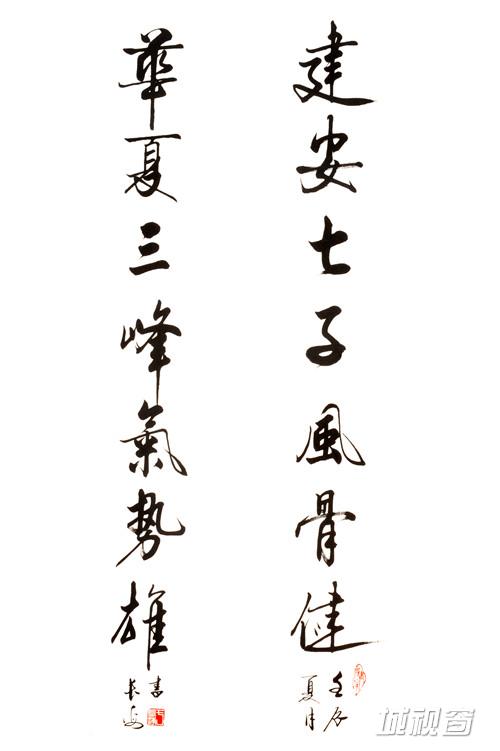 建安七子風骨健
壬辰
夏月
華夏三峰氣勢雄
書
長海
城视窗